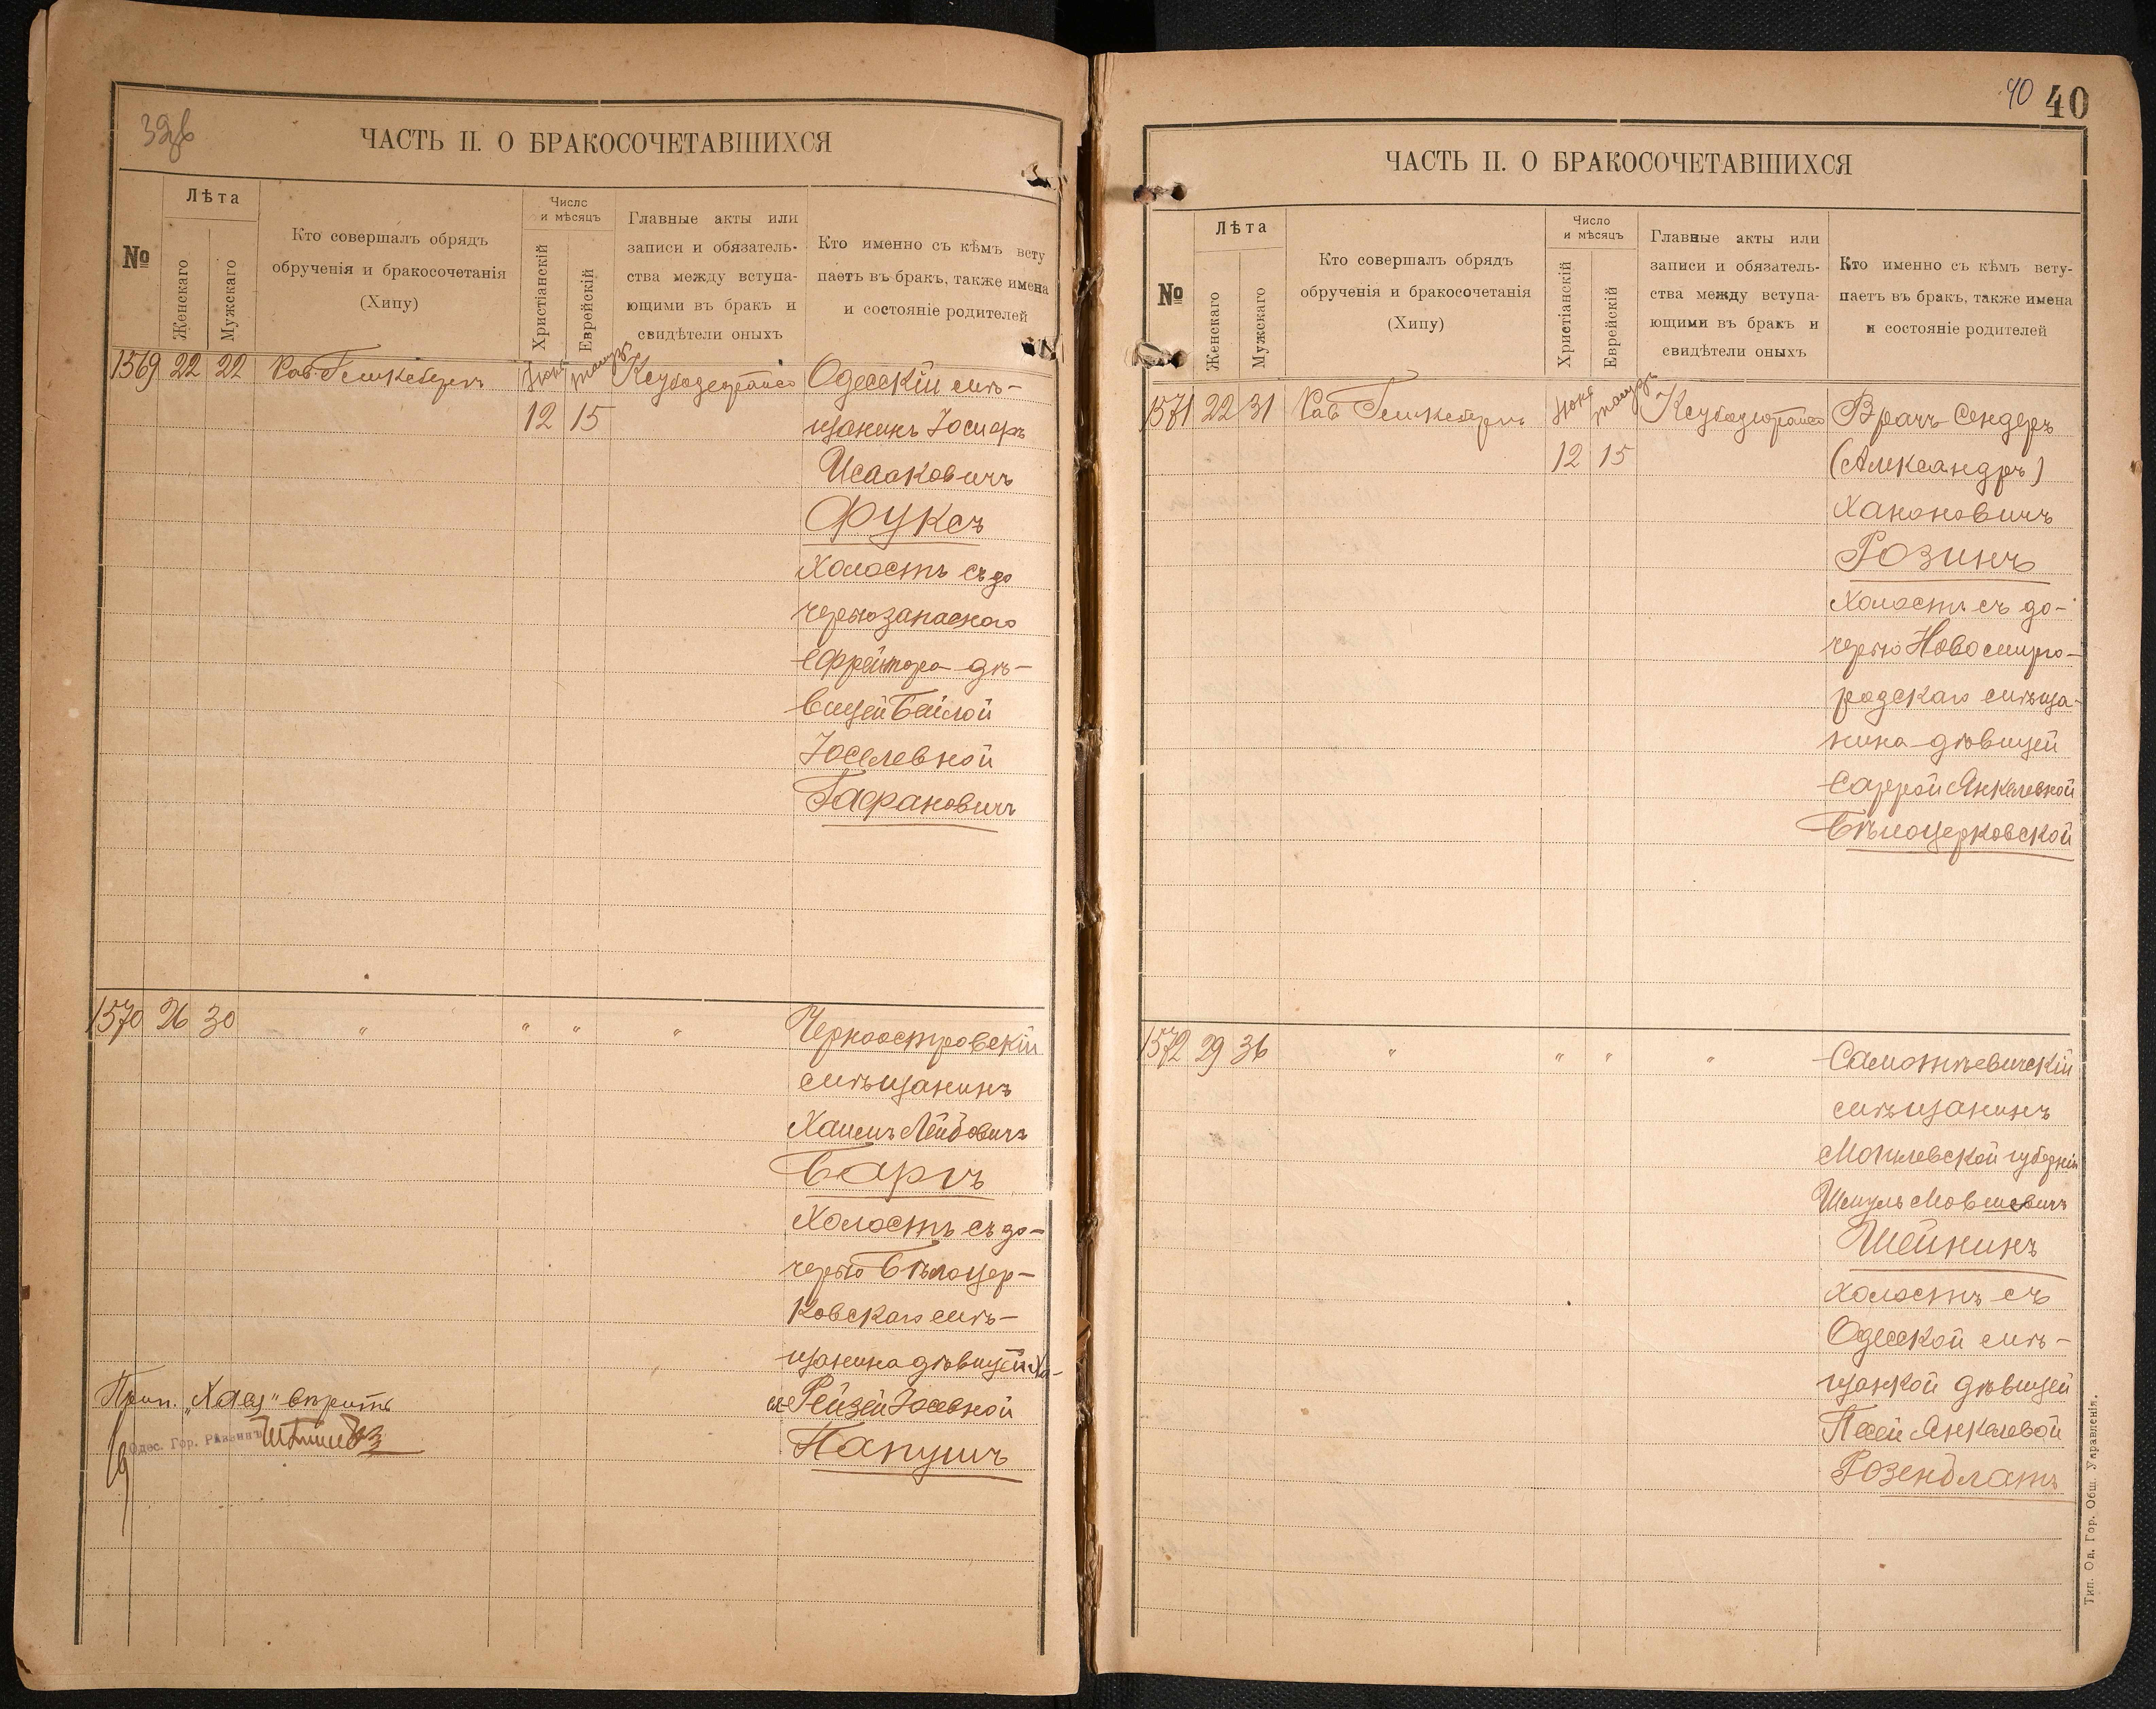 39об
ЧАСТЬ II. О БРАКОСОЧЕТАВШИХСЯ
№
Лѣта
Женскаго
Мужскаго
Кто совершалъ обрядъ
обрученія и бракосочетанія
(Хипу)
Число
и мѣсяцъ
Христіанскій
Еврейскій
Главные акты или
записи и обязатель-
ства между вступа-
ющими въ бракъ и
свидѣтели оныхъ
Кто именно съ кѣмъ всту
паетъ въ бракъ, также имена
и состояніе родителей
1569 22 22
Іюня
12 15
Одесскій мѣ-
щанинъ Іосифъ
Исааковичъ
Фуксъ
холостъ съ до
черью запаснаго
ефрейтора дѣ-
вицей Бейлой
Іоселевной
Гафановичъ
1570 26 30 " " " "
Черноостровскій
мѣщанинъ
Хаимъ Лейбовичъ
Баръ
холостъ съ до-
черью Бѣлоцер-
ковскаго мѣ-
щанина дѣвицей Ха-
ей-Рейзей Іосевной
Папушъ
Прип. „Хаей" вѣрить
Одес. Гор. Раввинъ
40 40
ЧАСТЬ II. О БРАКОСОЧЕТАВШИХСЯ
№
Лѣта
Женскаго
Мужскаго
Кто совершалъ обрядъ
обрученія и бракосочетанія
(Хипу)
Число
и мѣсяцъ
Христіанскій
Еврейскій
Главные акты или
записи и обязатель-
ства между вступа-
ющими въ бракъ и
свидѣтели оныхъ
Кто именно съ кѣмъ всту-
паетъ въ бракъ, также имена
и состояніе родителей
1571 22 31
Іюня
12 15
Врачъ Сендеръ
(Александръ)
Ханоновичъ
Розинъ
холостъ съ до-
черью Новомирго-
родскаго мѣща-
нина дѣвицей
Саррой Янкелевной
Бѣлоцерковской
1572 29 36 " " " "
мѣщанинъ
Могилевской губерніи
Шмуль Мовшевичъ
Шейнинъ
холостъ съ
Одесской мѣ-
щанкой дѣвицей
Песей Янкелевой
Розенблатъ
Тип. Од. Гор. Общ. Управленія.